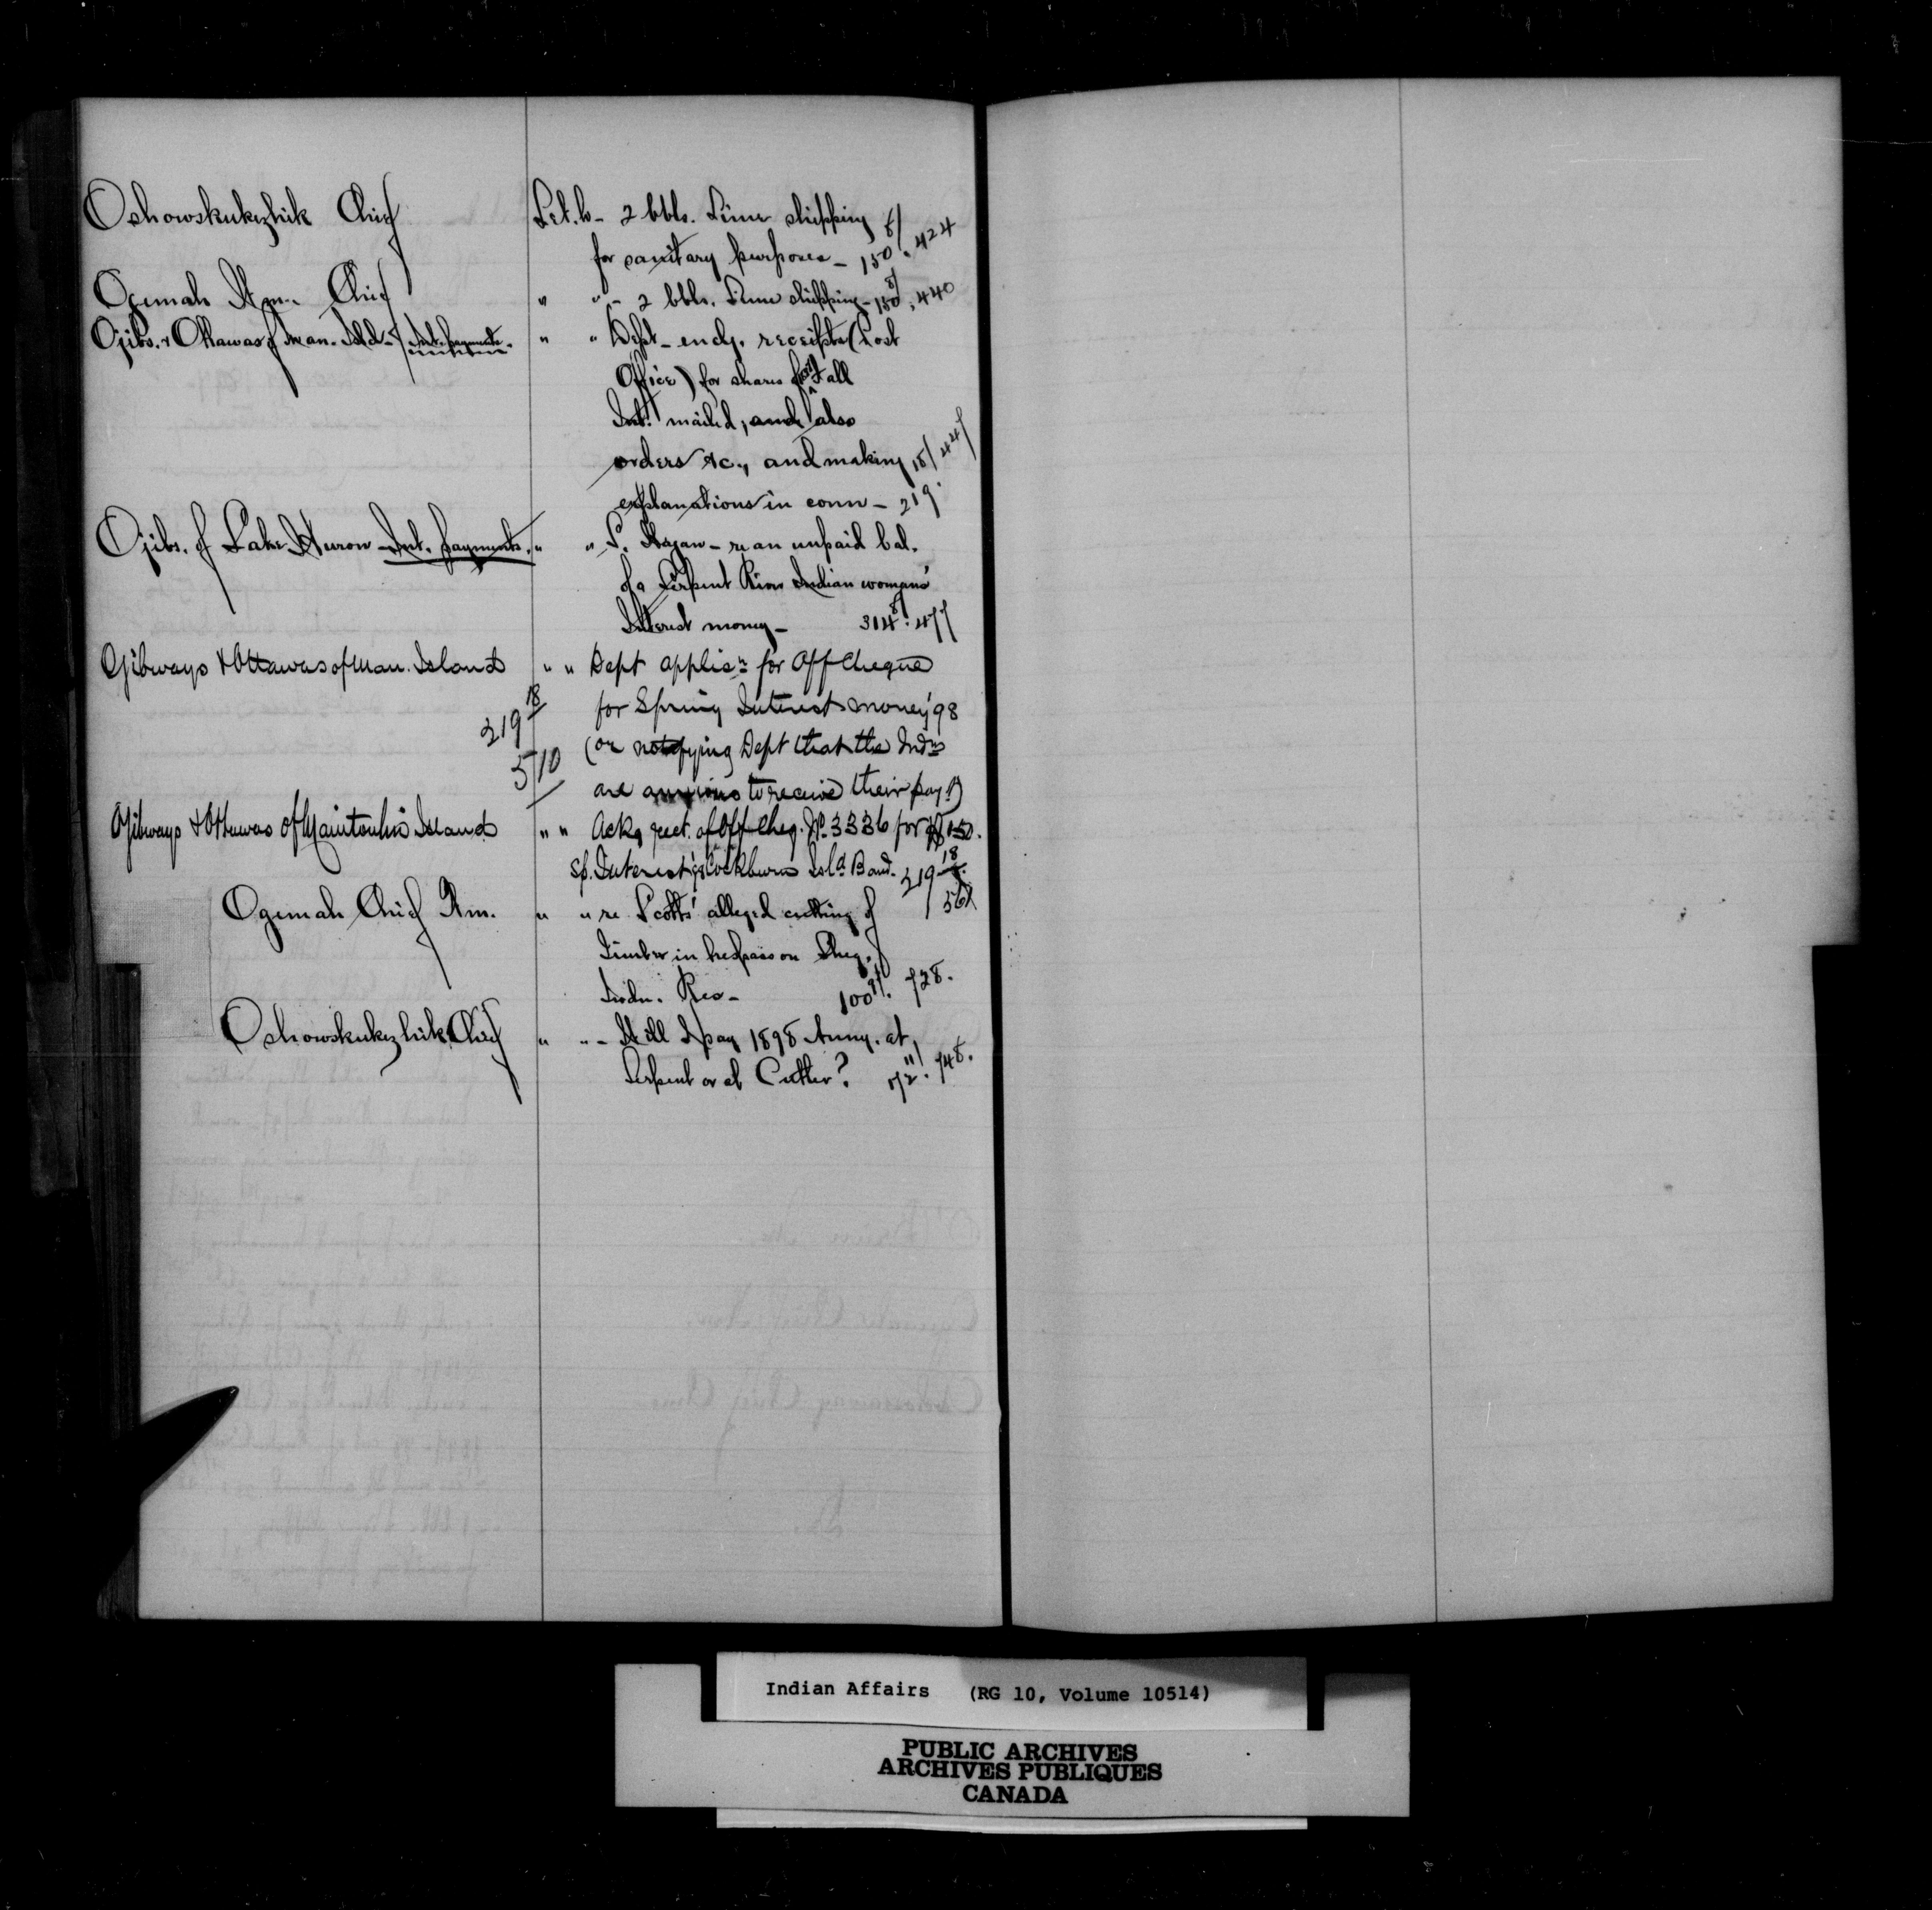 Oshowskukezhik Chief Let. to - 2 bbls. Lime shipping
for sanitary purposes - 150 8/. 424
Ogemah Wm. Chief " " - 2 bbls. Lime shipping - 150 8/. 440
Ojibs. & Ottawas of Man. Isld - Int. payments. " " Dept - encl. receipts (Post
Office) for shares of all
Int. mailed, and also
orders &c., and making 18/ 447
explanations in conn - 219.
Ojibs. of Lake Huron - Int. payments. " " S. Hagan - re an unpaid bal.
of a Serpent River Indian womans'
Interest money - 314 8/. 477
Ojibways & Ottawas of Man. Island " " Dept applicn for Off Cheque
219 18/ for Spring Interest money '98
510 (or notifying Dept that the Indns
are anxious to receive their pay.)
Ojibways & Ottawas of Manitoulin Island " " Ackg rect. of Off Cheq. No. 3336 for $150.
Sp. Interest '98 Cockburn Isld Band. 219 18/.
561
Ogemah Chief Wm. " " re Scotts' alleged cutting of
Timber in trespass on Sheg.
Indn. Res - 100 9/. 728.
Oshowskukezhik Chief " " - Will I pay 1898 Anny. at
Serpent or at Cutler? 72 11/. 748.
Indian Affairs (RG 10, Volume 10514)
PUBLIC ARCHIVES
ARCHIVES PUBLIQUES
CANADA